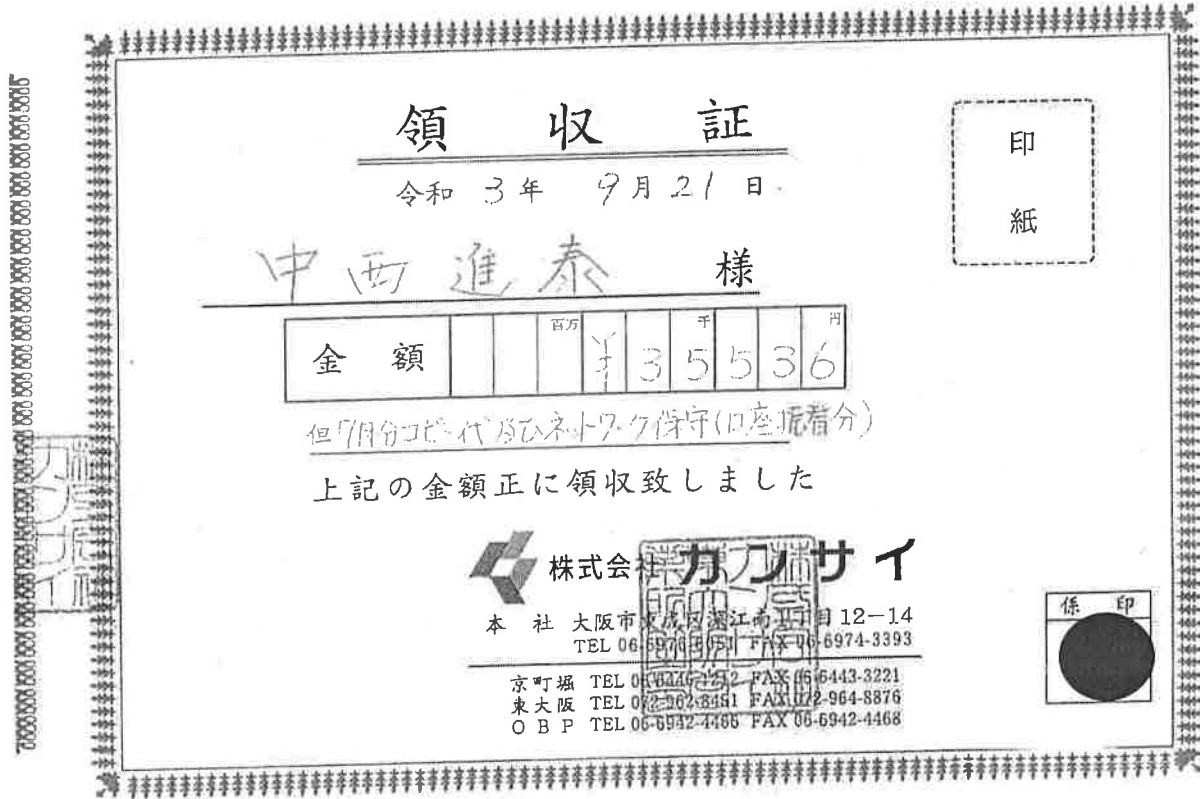 領収証
令和 3年 9月21日
印紙
中西進泰 様
金額 百万 千 円
¥35536
但 7月分コピー代及びネットワーク保守(口座振替分)
上記の金額正に領収致しました
株式会社カンサイ
本社 大阪市東成区深江南 丁目12-14
TEL 06-6976-6051 FAX 06-6974-3393
京町堀 TEL FAX 06-6443-3221
東大阪 TEL 072-962-8451 FAX 072-964-8876
OBP TEL 06-6942-4466 FAX 06-6942-4468
係印